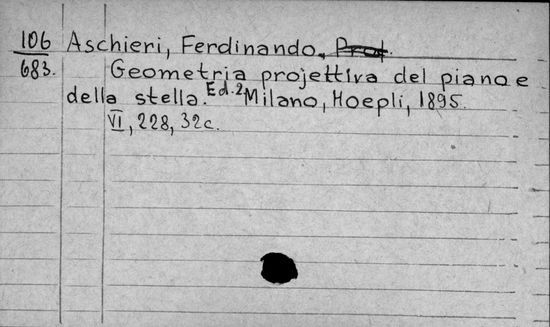 106 Aschieri, Ferdinando, Prof.
683. Geometria projettiva del piano e
della stella. Ed. 2. Milano, Hoepli, 1895.
VI, 228, 32 c.